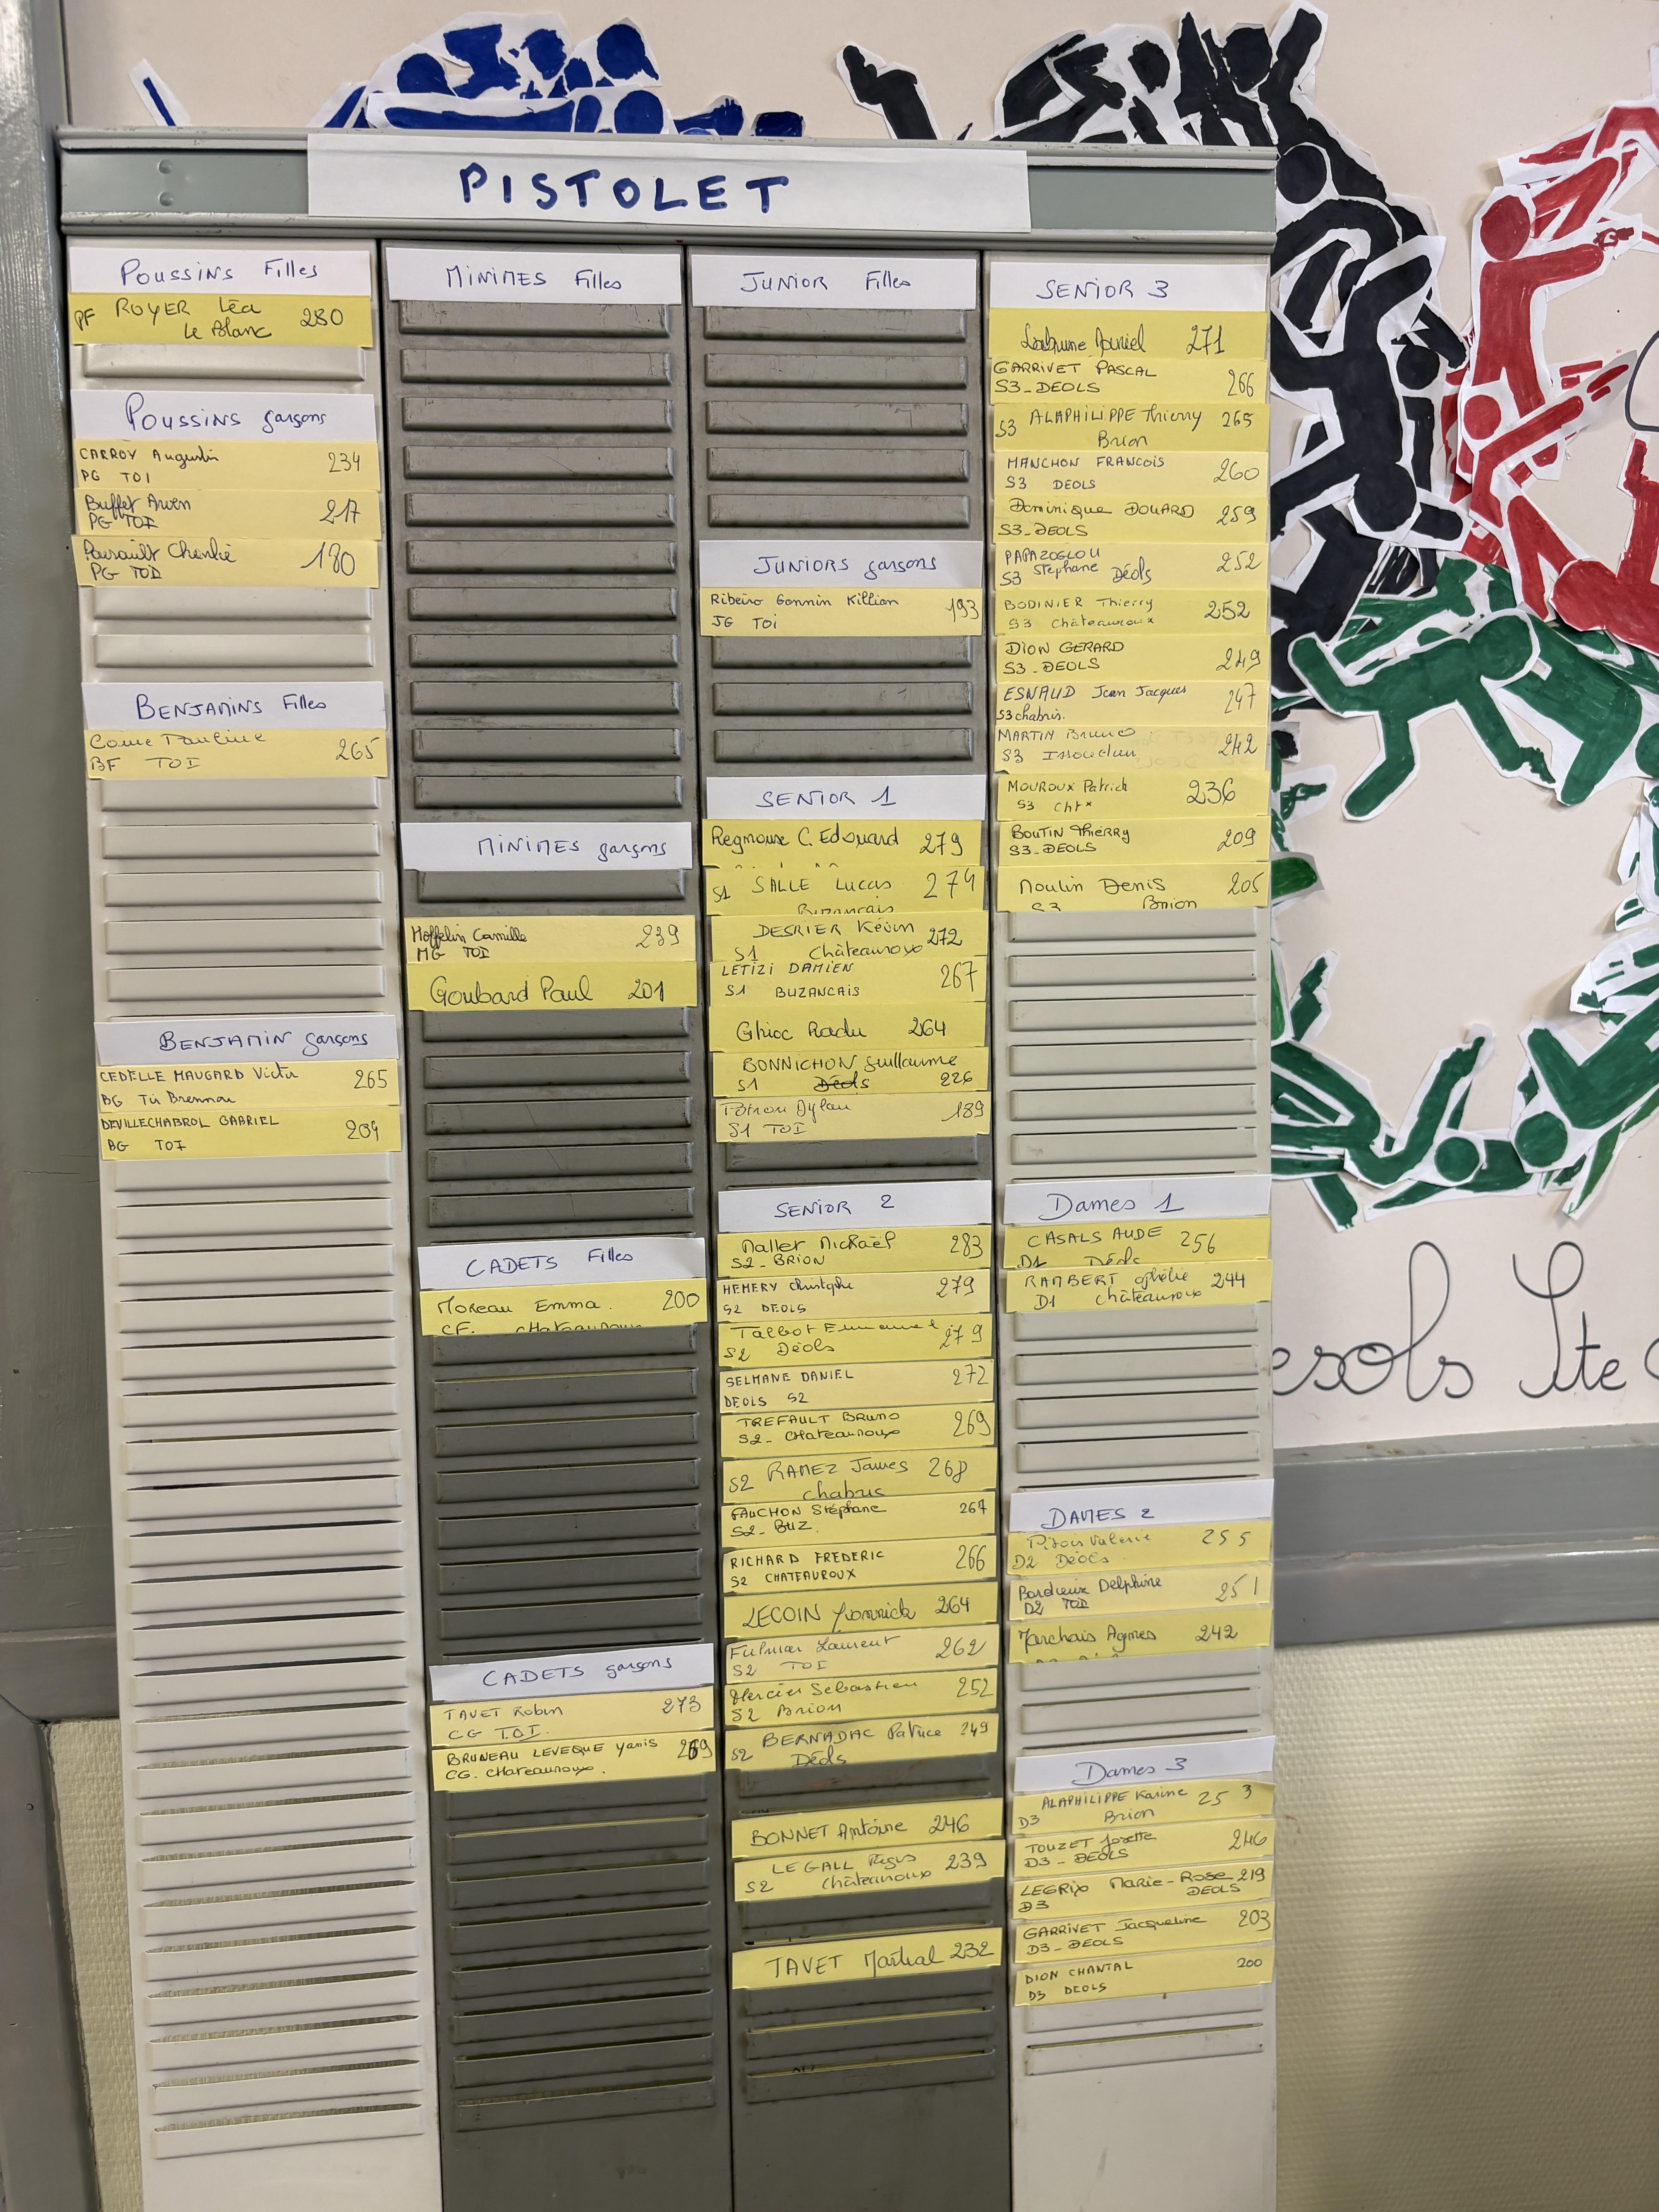 PISTOLET
POUSSINS Filles
PF ROYER Léa 280
Le Blanc
POUSSINS garçons
CARROY Augustin 234
PG TOI
Buffet Arwen 217
PG TOI
180
PG TOI
BENJAMINS Filles
Pauline 265
BF TOI
BENJAMIN garçons
CEDELLE MAUGARD Victor 265
BG Tir Brennou
DEVILLECHABROL GABRIEL 209
BG TOI
MINIMES Filles
MINIMES garçons
Hoffelin Camille 239
MG TOI
Goubard Paul 201
CADETS Filles
Moreau Emma. 200
CF. chateauroux
CADETS garçons
TAVET Robin 273
CG TOI
BRUNEAU LEVEQUE Yanis 269
CG. chateauroux.
JUNIOR Filles
JUNIORS garçons
Ribeiro Gonnin Killian 193
JG TOI
SENIOR 1
C. Edouard 279
S1 SALLE Lucas 274
Buzancais
DESRIER Kévin 272
S1 Châteauroux
LETIZI DAMIEN 267
S1 BUZANCAIS
Ghioc Radu 264
BONNICHON Guillaume
S1 Déols 226
Poirou Dylan 189
S1 TOI
SENIOR 2
Mallet Mickaël 283
S2 - BRION
HEMERY Christophe 279
S2 DEOLS
Talbot Emmanuel 279
S2 Déols
SELMANE DANIEL 272
DEOLS S2
TREFAULT BRUNO 269
S2 - CHateauroux
S2 RAMEZ James 268
chabris
FAUCHON Stéphane 267
S2 - BUZ.
RICHARD FREDERIC 266
S2 CHATEAUROUX
LECOIN Yannick 264
Laurent 262
S2 TOI
Mercier Sébastien 252
S2 Brion
S2 BERNADAC Patrice 249
Déols
BONNET Antoine 246
LE GALL Régis 239
S2 Châteauroux
TAVET Martial 232
SENIOR 3
Labrune Daniel 271
GARRIVET PASCAL 266
S3 - DEOLS
S3 ALAPHILIPPE Thierry 265
Brion
MANCHON FRANCOIS 260
S3 DEOLS
Dominique DOUARD 259
S3 - DEOLS
PAPAZOGLOU 252
S3 Stephane Déols
BODINIER Thierry 252
S3 Châteauroux
DION GERARD 249
S3 - DEOLS
ESNAUD Jean Jacques 247
S3 chabris.
MARTIN Bruno 242
S3 Issoudun
MOUROUX Patrick 236
S3 Chtx
BOUTIN THIERRY 209
S3 - DEOLS
Moulin Denis 205
S3 Brion
Dames 1
CASALS AUDE 256
D1 Déols
RAMBERT Ophélie 244
D1 Châteauroux
DAMES 2
Valerie 255
D2 Déols
Bordieux Delphine 251
D2 TOI
Marchais Agnes 242
Dames 3
ALAPHILIPPE Karine 253
D3 Brion
TOUZET Josette 246
D3 - DEOLS
LEGRIX Marie-Rose 219
D3 DEOLS
GARRIVET Jacqueline 203
D3 - DEOLS
DION CHANTAL 200
D3 DEOLS
esols Ste